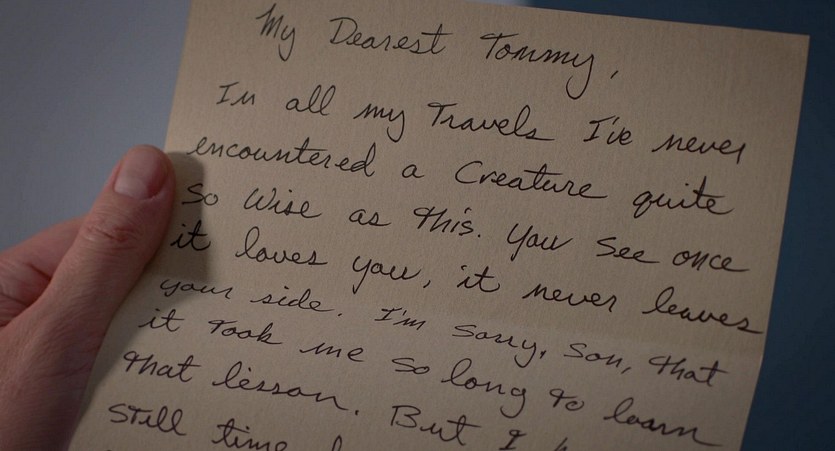 My Dearest Tommy,
In all my Travels I've never
encountered a Creature quite
So Wise as this. You See once
it loves you, it never leaves
your side. I'm Sorry, Son, that
it took me so long to learn
that lesson. But I
Still time